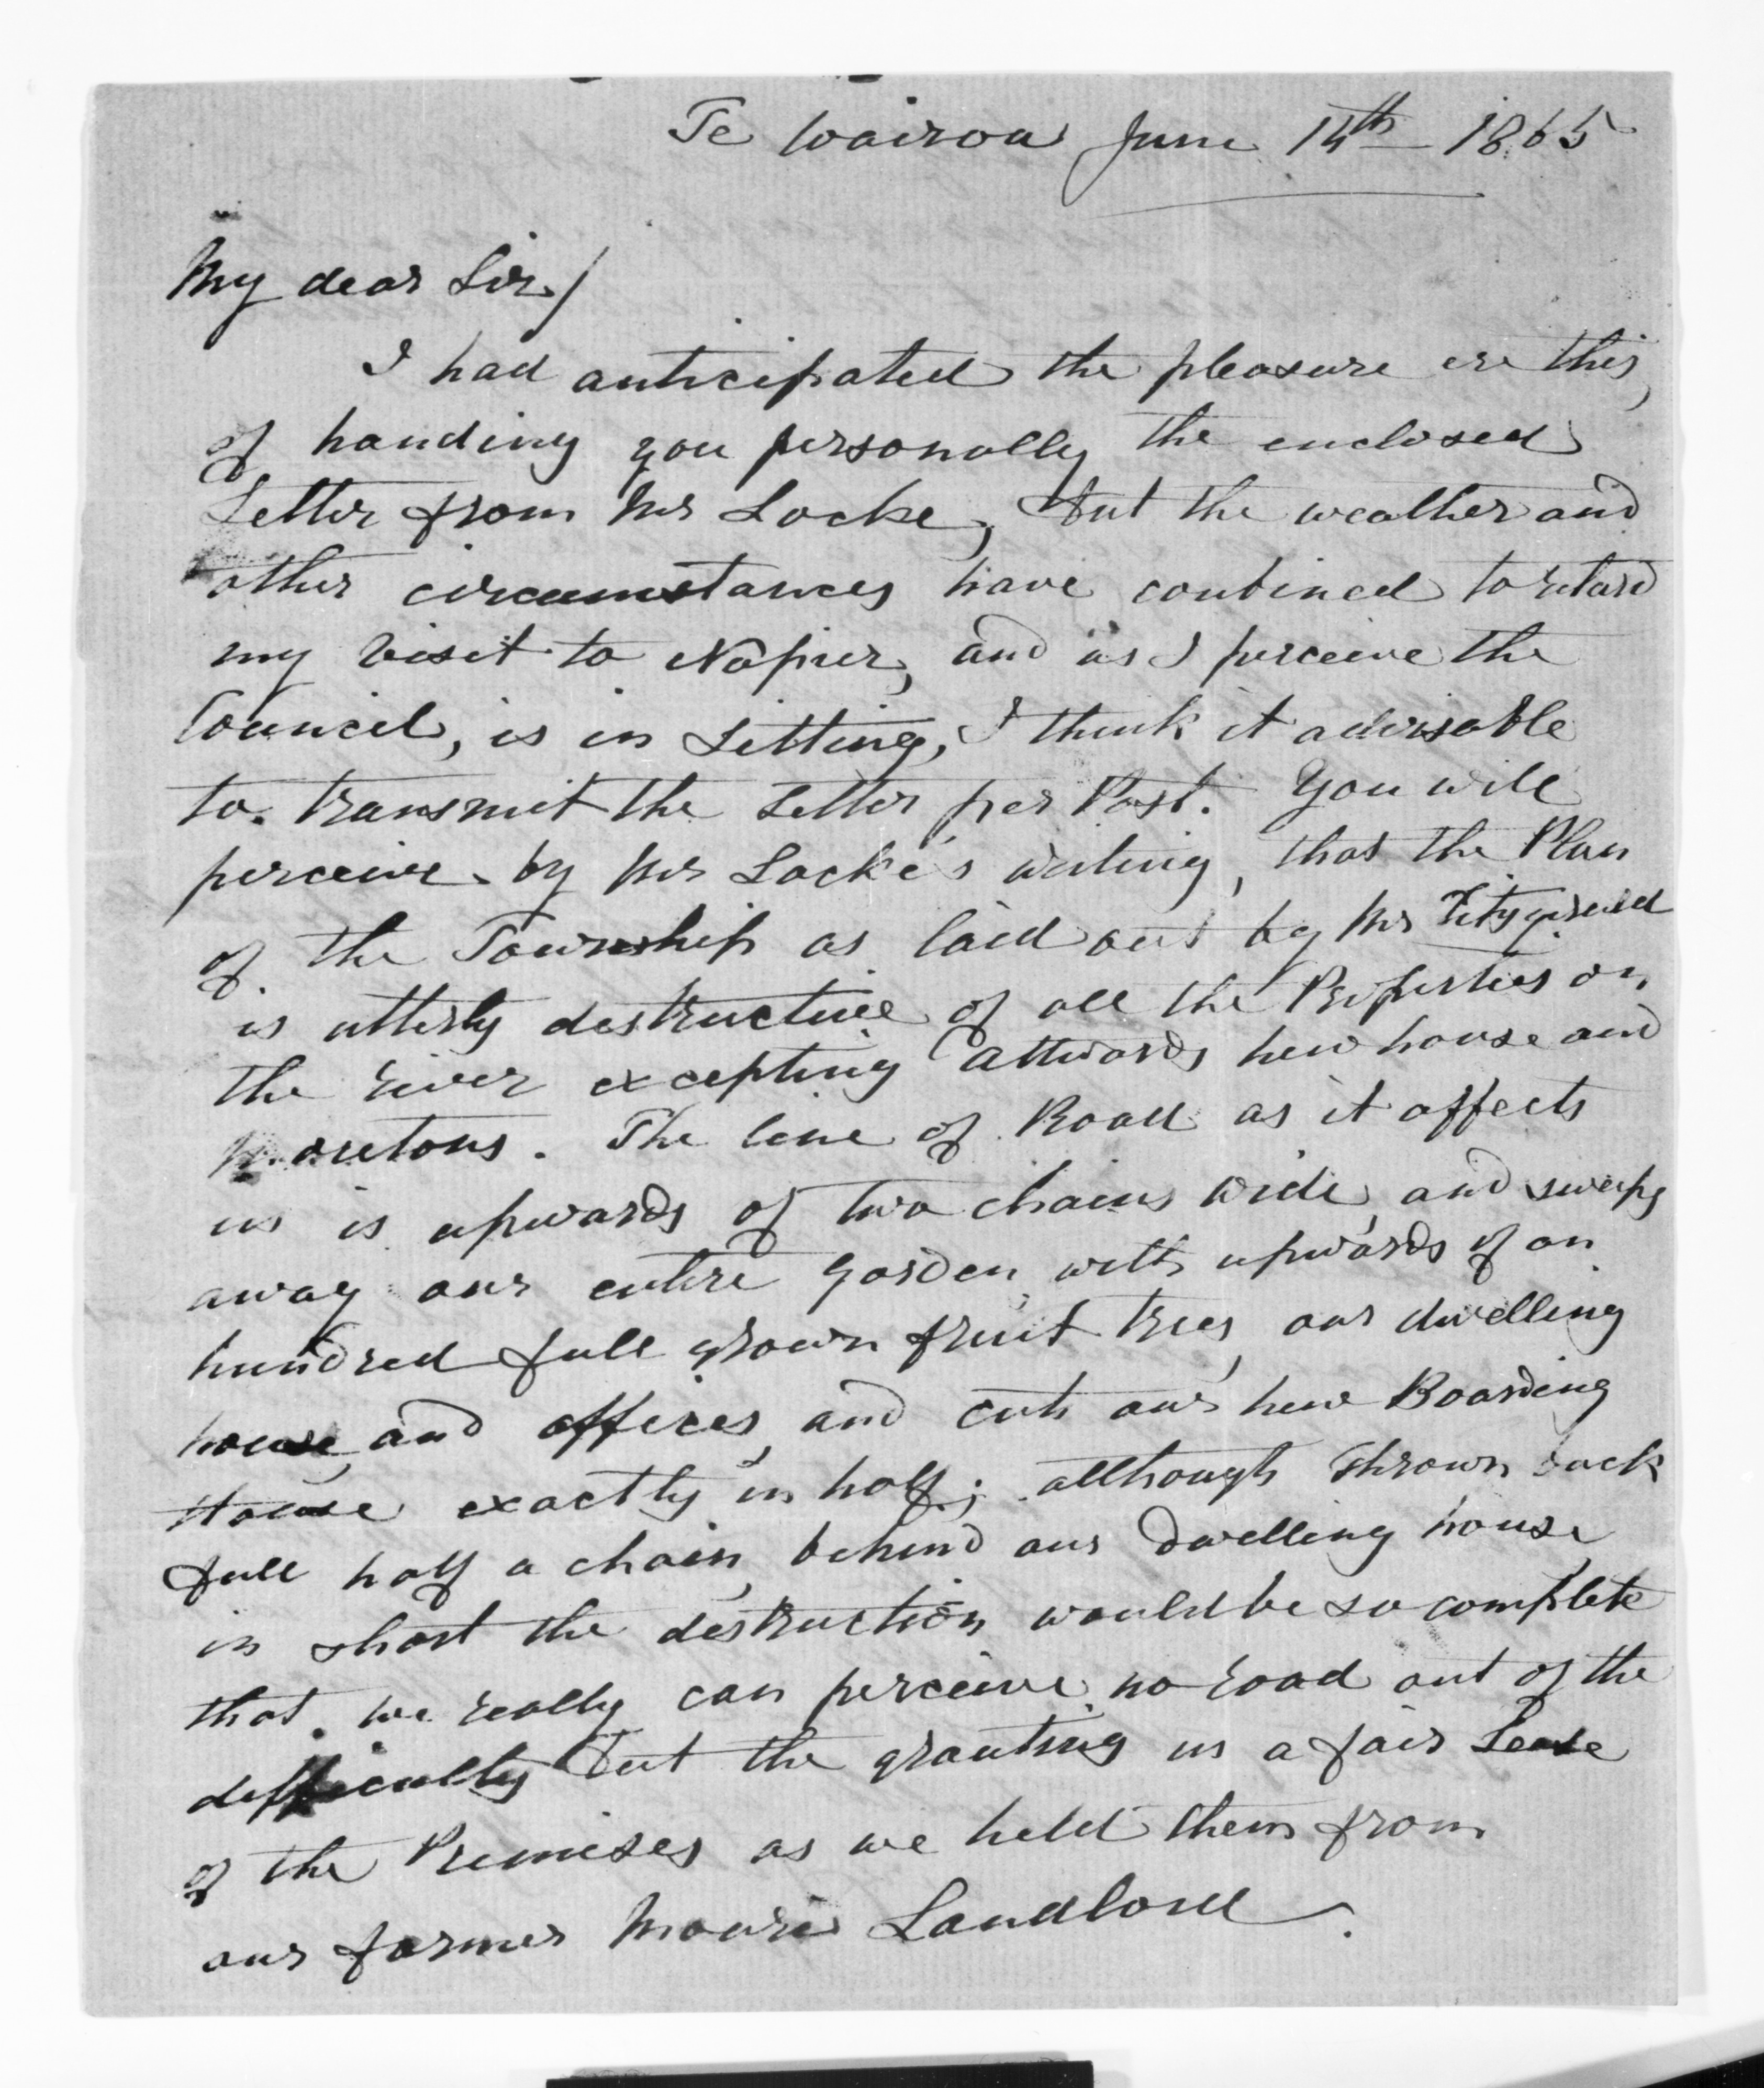 Te Wairoa June 14th 1865
My dear Sir/
I had anticipated the pleasure ere this,
of handing you personally the enclosed
Letter from Mr Locke, but the weather and
other circumstances have conbined to retard
my visit to Napier, and as I perceive the
Council, is in Sitting, I think it advisable
to transmit the Letter per Post. You will
perceive by Mr Locke's writing, that the Plan
of the Township as laid out by Mr Fitzgerald
is utterly destructive of all the Properties on
the river excepting Attwoods new house and
Moretons. The line of Road as it affects
us is upwards of two chains wide, and sweeps
away our entire garden with upwards of an
hundred full grown fruit trees, our dwelling
house, and offices, and cuts our new Boarding
House exactly in half; although thrown back
full half a chain, behind our dwelling house
in short the destruction would be so complete
that we really can perceive no road out of the
difficulty but the granting us a fair Lease
of the Premises as we held them from
our former Maori Landlord.